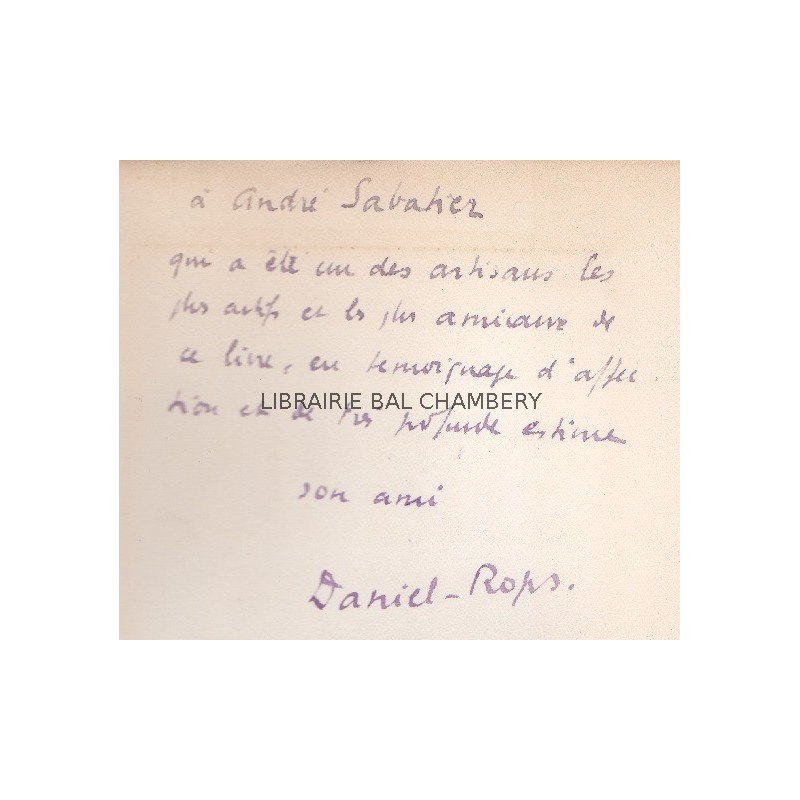 à André Sabatier
qui a été un des artisans les
plus actifs et les plus amicaux de
ce livre, en témoignage d'affec-
tion et de très profonde estime
LIBRAIRIE BAL CHAMBERY
son ami
Daniel-Rops.